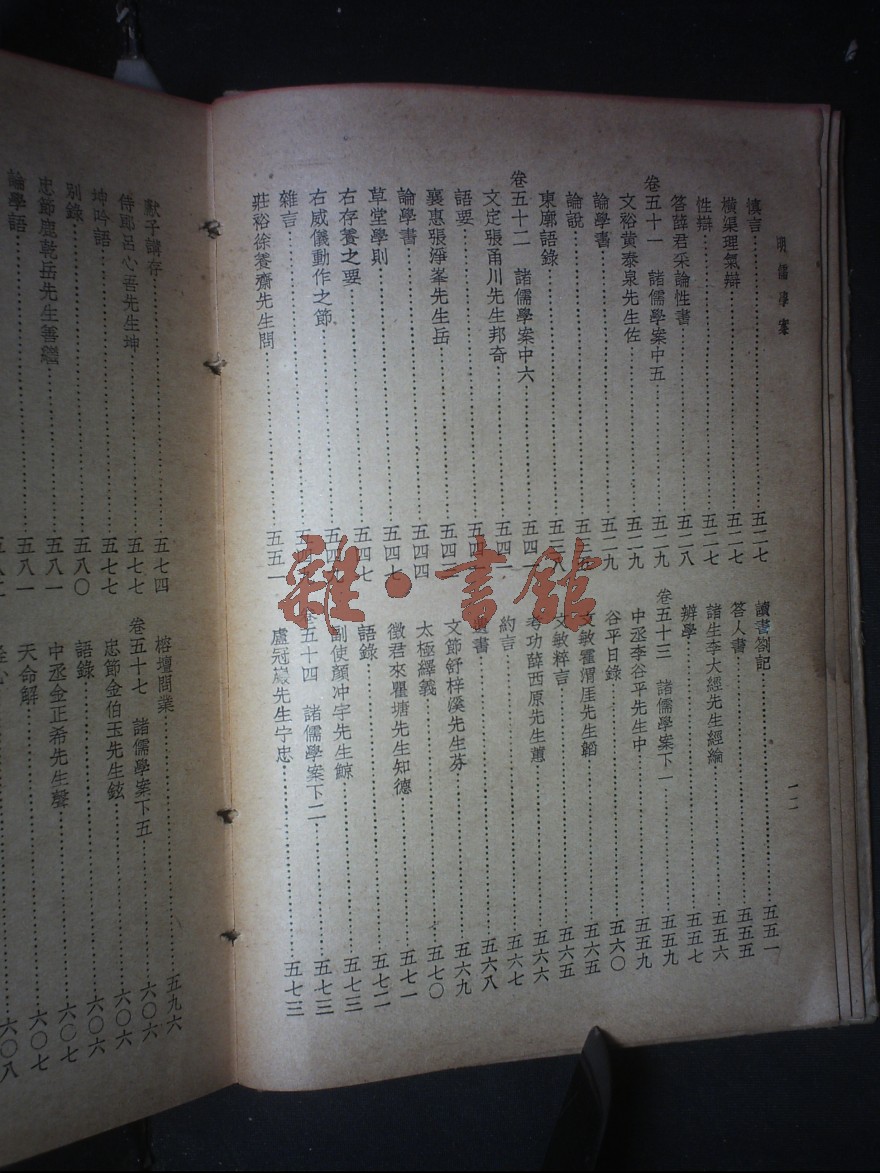 明儒學案
一二
慎言……五二七
橫渠理氣辯……五二七
性辯……五二七
答薛君采論性書……五二八
卷五十一 諸儒學案中五……五二九
文裕黃泰泉先生佐……五二九
論學書……五二九
論說
東廓語錄
卷五十二 諸儒學案中六……五四一
文定張甬川先生邦奇……五四一
語要
襄惠張淨峯先生岳
論學書……五四四
草堂學則……五四七
右存養之要……五四七
右威儀動作之節
雜言
莊裕徐養齋先生問……五五一
讀書劄記……五五一
答人書……五五五
諸生李大經先生經綸……五五六
辨學……五五七
卷五十三 諸儒學案下一……五五九
中丞李谷平先生中……五五九
谷平日錄……五六〇
文敏霍渭厓先生韜……五六五
文敏粹言……五六五
考功薛西原先生蕙……五六六
約言……五六七
書……五六八
文節舒梓溪先生芬……五六九
太極繹義……五七〇
徵君來瞿塘先生知德……五七一
語錄……五七二
副使顏冲宇先生鯨……五七三
卷五十四 諸儒學案下二……五七三
盧冠巖先生宁忠……五七三
獻子講存……五七四
侍郎呂心吾先生坤……五七七
呻吟語……五七七
別錄……五八〇
忠節鹿乾岳先生善繼……五八一
論學語……五八一
榕壇問業……五九六
卷五十七 諸儒學案下五……六〇六
忠節金伯玉先生鉉……六〇六
語錄……六〇六
中丞金正希先生聲……六〇七
天命解……六〇七
六〇八
雜·書館